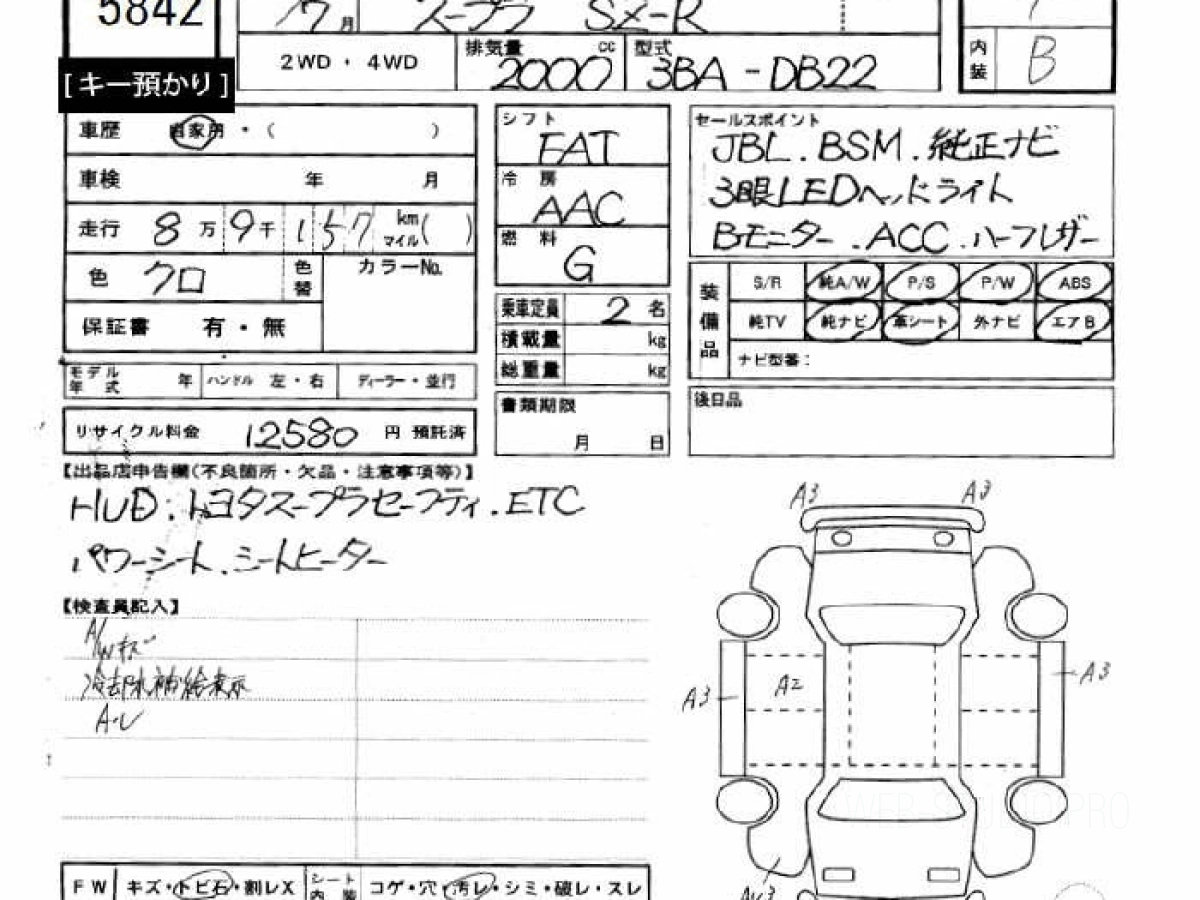 5842
7月 スープラ SZ-R
内装 B
2WD・4WD 排気量 2000 cc 型式 3BA-DB22
[キー預かり]
車歴 自家用・( )
車検 年 月
走行 8万9千157 km マイル( )
色 クロ 色替 カラーNo.
保証書 有・無
モデル年式 年 ハンドル 左・右 ディーラー・並行
リサイクル料金 12580 円 預託済
シフト
FAT
冷房
AAC
燃料
G
乗車定員 2 名
積載量 kg
総重量 kg
書類期限
月 日
セールスポイント
JBL.BSM.純正ナビ
3眼LEDヘッドライト
Bモニター.ACC.ハーフレザー
装備品
S/R 純A/W P/S P/W ABS
純TV 純ナビ 革シート 外ナビ エアB
ナビ型番:
後日品
【出品店申告欄(不良箇所・欠品・注意事項等)】
HUD.トヨタスープラセーフティ.ETC
パワーシート.シートヒーター
【検査員記入】
A/Wキズ
冷却水補給表示
A・レ
A3 A3
A3 A2 A3
WEB-STUDIO PRO
FW キズ・トビ石・割レX シート内装 コゲ・穴・汚レ・シミ・破レ・スレ